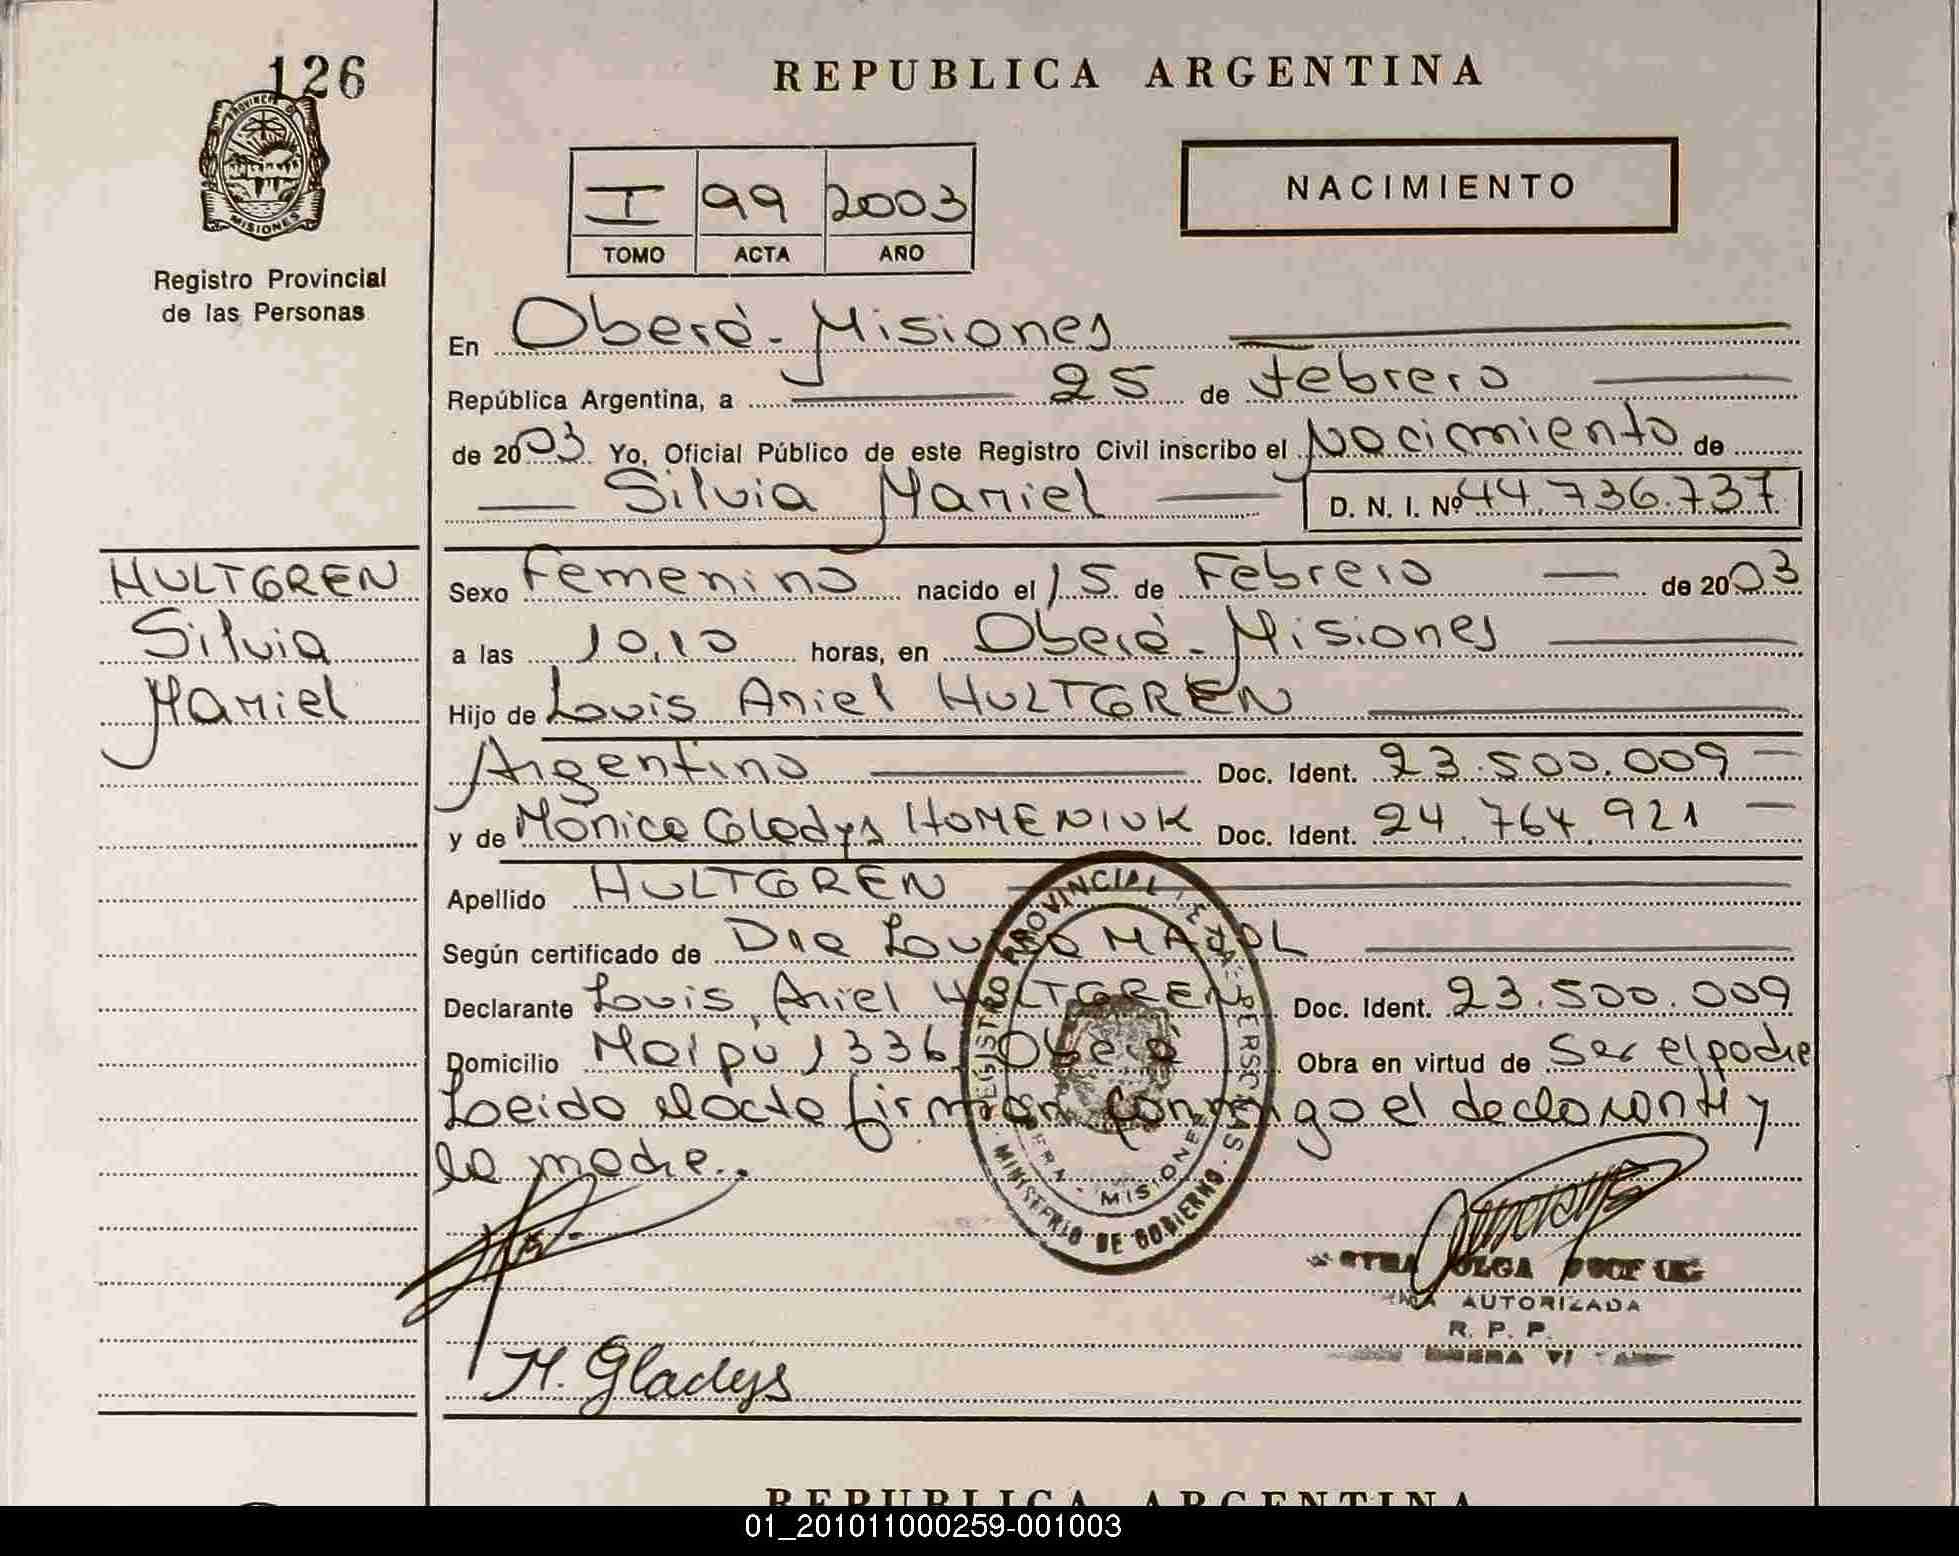 126
REPUBLICA ARGENTINA
PROVINCIA DE
MISIONES
Registro Provincial
de las Personas
I 99 2003
TOMO ACTA AÑO
NACIMIENTO
En Oberá - Misiones
República Argentina, a 25 de febrero
de 2003 Yo, Oficial Público de este Registro Civil inscribo el Nacimiento de
Silvia Mariel D. N. I. Nº 44.736.737
HULTGREN
Silvia
Mariel
Sexo Femenino nacido el 15 de Febrero de 2003
a las 10,10 horas, en Oberá - Misiones
Hijo de Louis Ariel HULTGREN
Argentino Doc. Ident. 23.500.009
y de Mónica Gladys HOMENIUK Doc. Ident. 24.764.921
Apellido HULTGREN
Según certificado de Dra MAJOL
Declarante Louis Ariel HULTGREN Doc. Ident. 23.500.009
Domicilio Maipú 1336 Oberá Obra en virtud de Ser el padre
Leido el acta firman conmigo el declarante y
la madre.
REGISTRO PROVINCIAL DE LAS PERSONAS
MINISTERIO DE GOBIERNO
MISIONES
OLGA
AUTORIZADA
R. P. P.
M. Gladys
REPUBLICA ARGENTINA
01_201011000259-001003